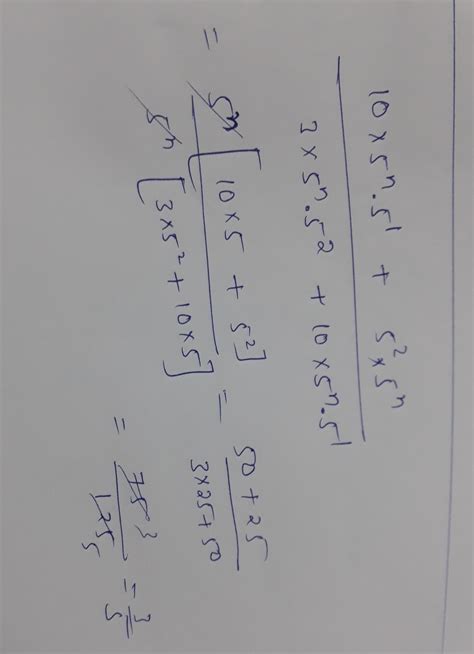 10 × 5ⁿ · 5¹ + 5² × 5ⁿ
3 × 5ⁿ · 5² + 10 × 5ⁿ · 5¹
= 5ⁿ [10 × 5 + 5²] / 5ⁿ [3 × 5² + 10 × 5] = 50 + 25 / 3 × 25 + 50
= 75 3 / 125 5 = 3/5